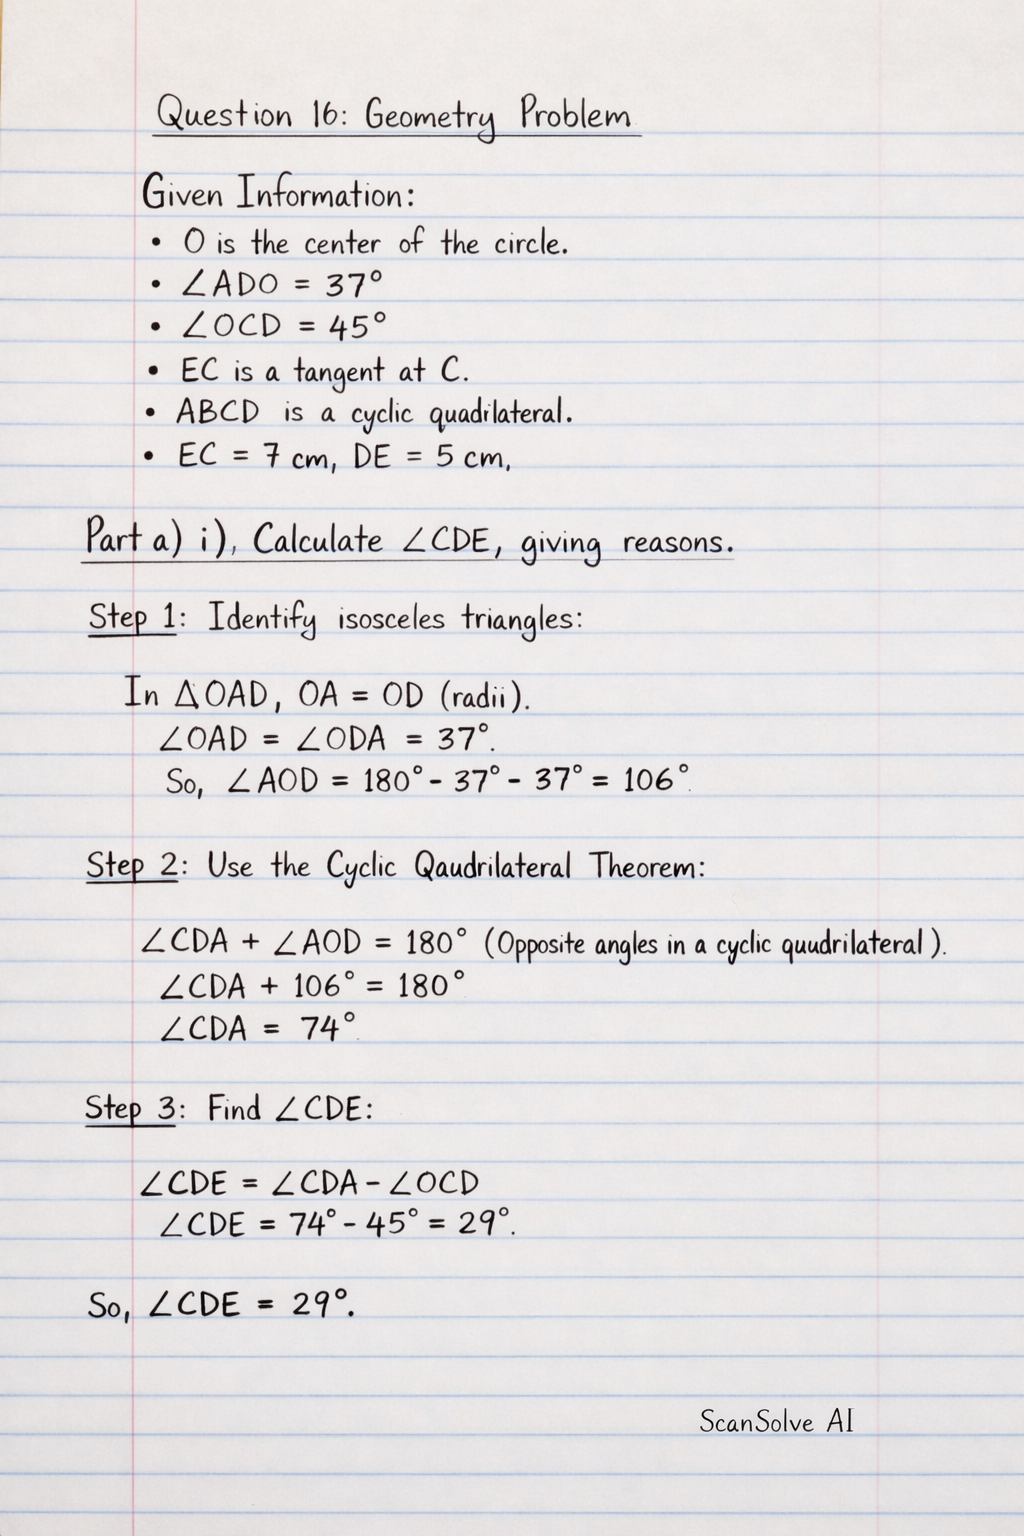 Question 16: Geometry Problem
Given Information:
• O is the center of the circle.
• ∠ADO = 37°
• ∠OCD = 45°
• EC is a tangent at C.
• ABCD is a cyclic quadrilateral.
• EC = 7 cm, DE = 5 cm,
Part a) i), Calculate ∠CDE, giving reasons.
Step 1: Identify isosceles triangles:
In △OAD, OA = OD (radii).
∠OAD = ∠ODA = 37°.
So, ∠AOD = 180° - 37° - 37° = 106°.
Step 2: Use the Cyclic Qaudrilateral Theorem:
∠CDA + ∠AOD = 180° (Opposite angles in a cyclic quudrilateral).
∠CDA + 106° = 180°
∠CDA = 74°.
Step 3: Find ∠CDE:
∠CDE = ∠CDA - ∠OCD
∠CDE = 74° - 45° = 29°.
So, ∠CDE = 29°.
ScanSolve AI